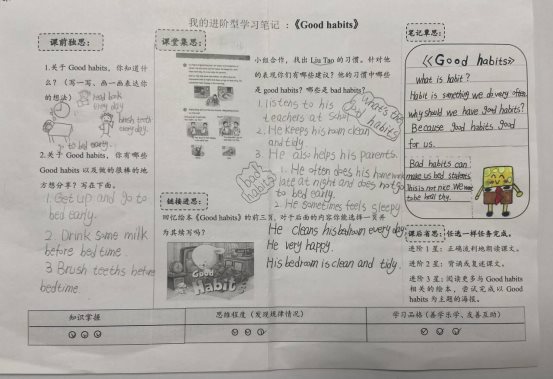 我的进阶型学习笔记：《Good habits》
课前独思：
1.关于 Good habits，你知道什
么？（写一写、画一画表达你
的想法）
read book
every day.
brush teeth
every day.
go to bed early.
2.关于 Good habits，你有哪些
Good habits 以及做的很棒的地
方想分享？写在下面。
1. Get up and go to
bed early.
2. Drink some milk
before bed time.
3 Brush teeths before
bedtime.
课堂集思：
小组合作，找出 Liu Tao 的习惯。针对他
的表现你们有哪些建议？他的习惯中哪些
是 good habits？哪些是 bad habits？
good habits
1. listens to his
teachers at school
2. He keeps his room clean
and tidy.
3. He also helps his parents.
bad habits
1. He often does his homework
late at night and does not go
to bed early.
2. He sometimes feels sleepy
链接进思：
回忆绘本《Good habits》的前三页，对于后面的内容你能选择一页并
为其续写吗？
Good
Habits
He cleans his bedroom every day.
He very happy.
His bedroom is clean and tidy.
笔记单思：
《Good habits》
what is habit?
Habit is something we do very often.
why should we have good habits?
Because good habits good
for us.
Bad habits can
make us bad students.
This is not nice. We want
to be healthy.
课后省思：任选一样任务完成。
进阶 1 星：正确流利地朗读课文。
进阶 2 星：背诵或复述课文。
进阶 3 星：阅读更多与 Good habits
相关的绘本，尝试完成以 Good
habits 为主题的海报。
知识掌握
思维程度（发现规律情况）
学习品格（善学乐学、友善互助）